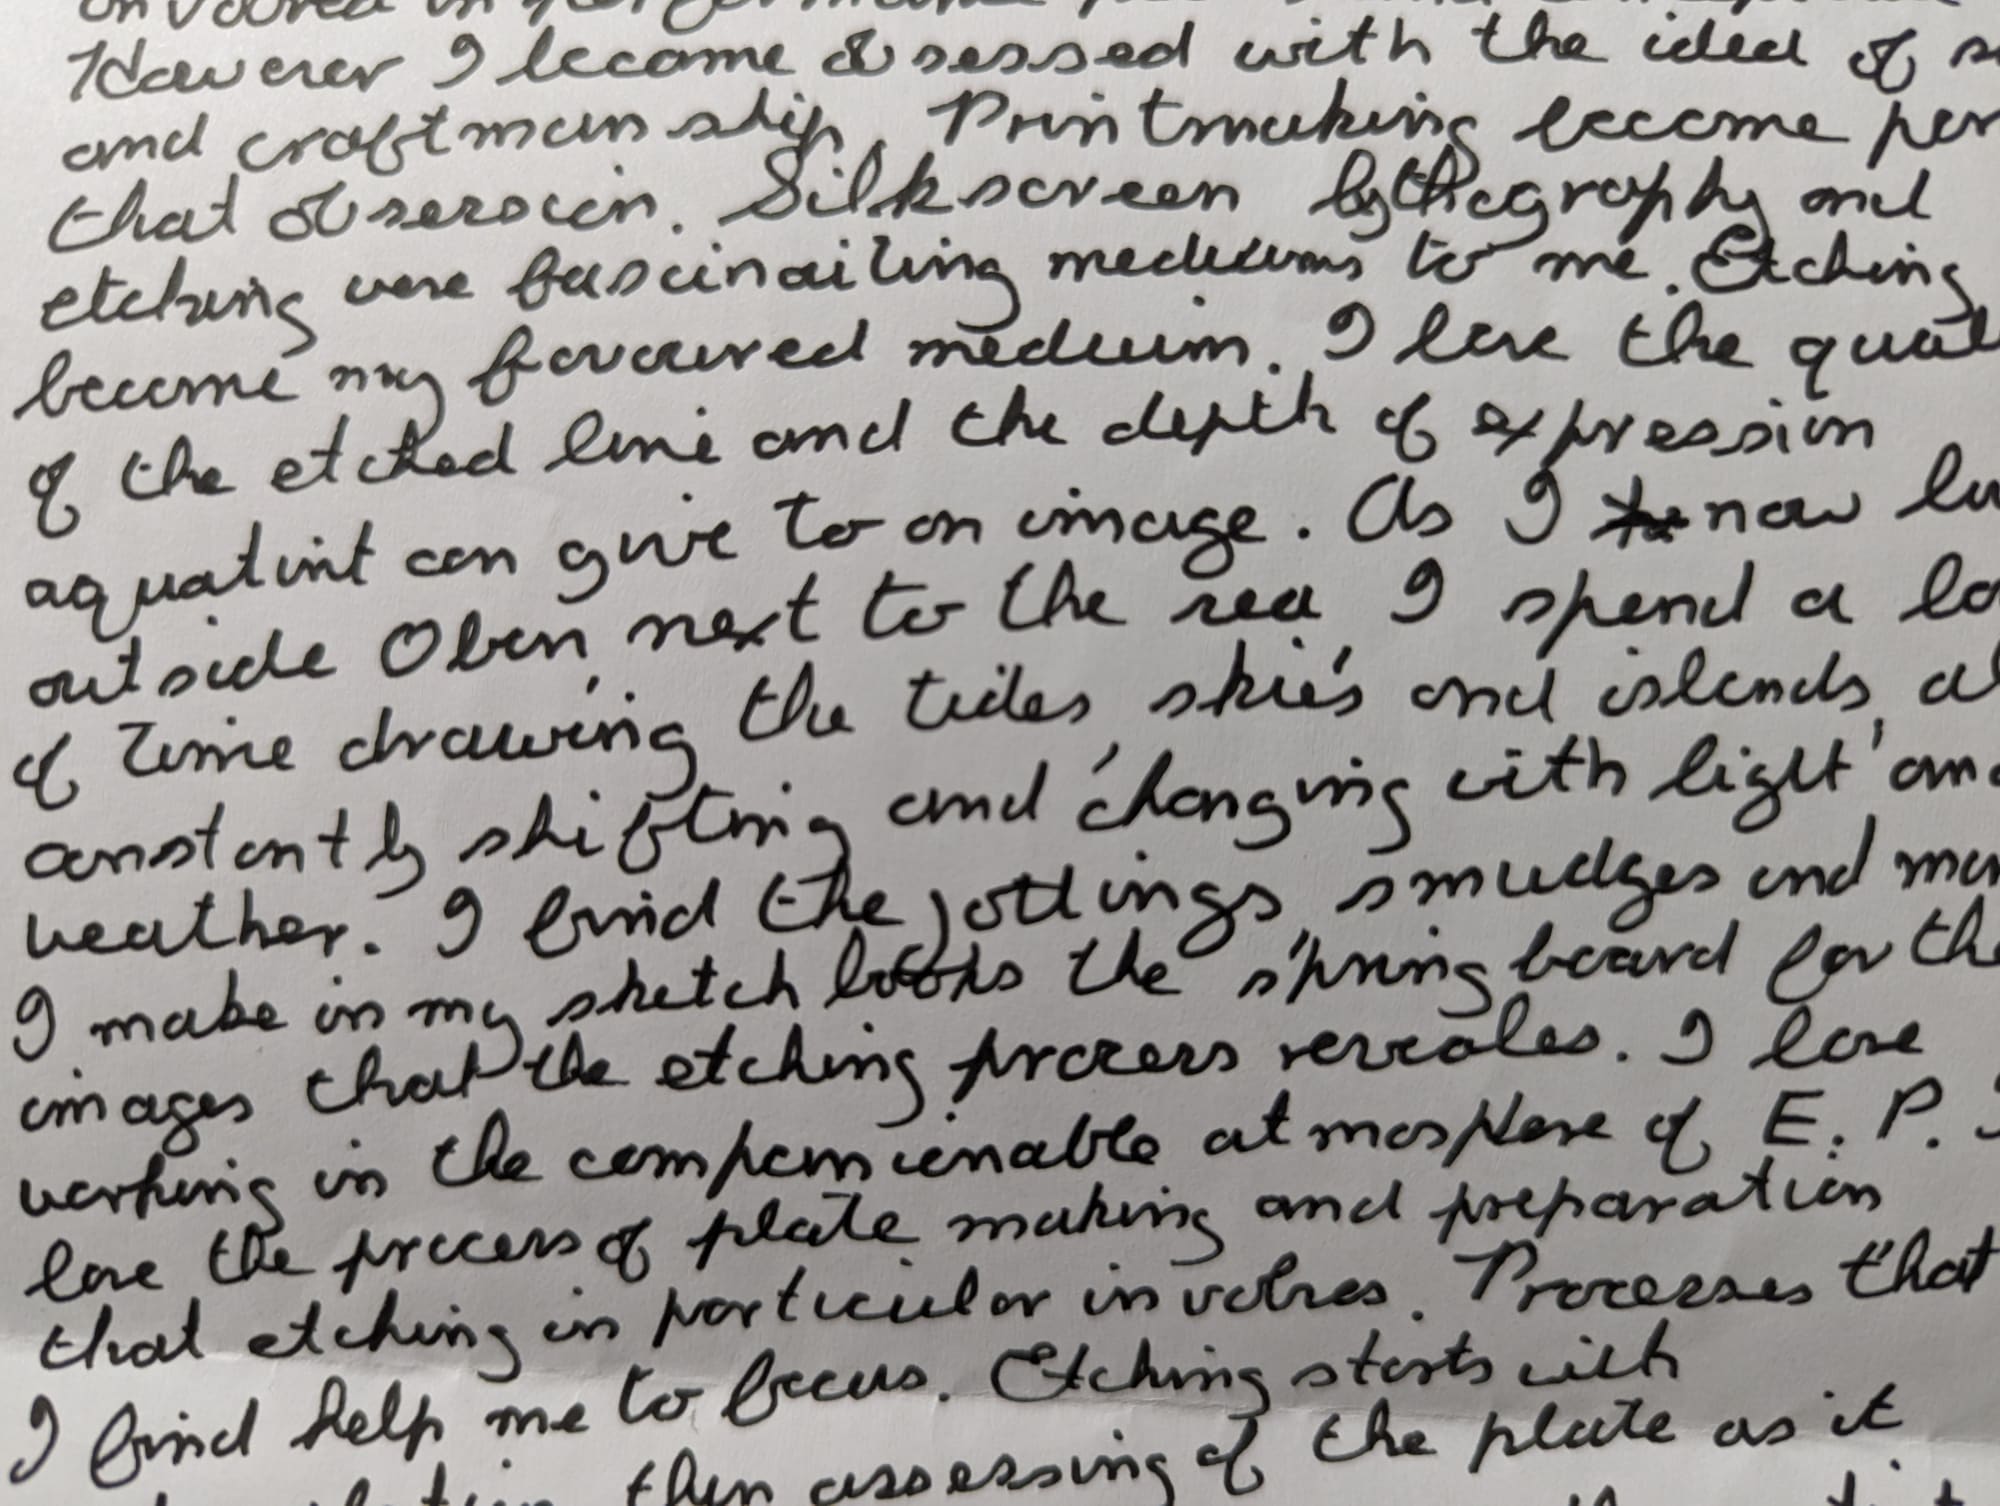 However I became obsessed with the idea of
and craftmanship. Printmaking became
that obsession. Silkscreen lythography and
etching were fascinaiting mediums to me. Etching
became my favoured medium. I love the
of the etched line and the depth of expression
aquatint can give to an image. As I now
outside Oban, next to the sea I spend a
of time drawing the tides, skies and islands,
constantly shifting and changing with light and
weather. I find the jottings, smudges and
I make in my sketch books the spring board for the
images that the etching process reveales. I love
working in the companionable atmosphere of E. P.
love the process of plate making and preparation
that etching in particular involves. Processes that
I find help me to focus. Etching starts with
then assessing of the plate as it